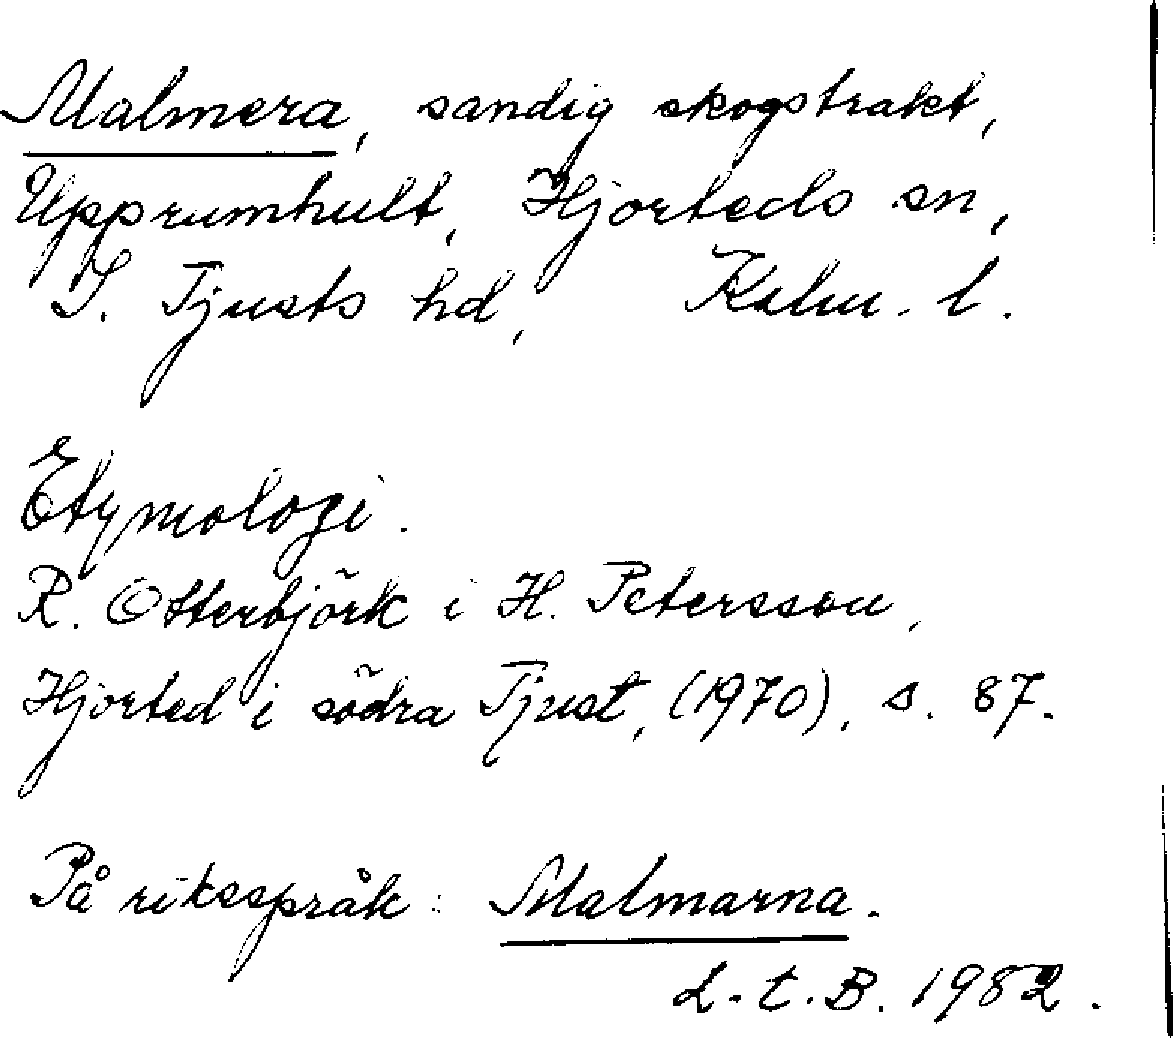 Malmera, sandig skogstrakt,
Upprumhult, Hjorteds sn,
S. Tjusts hd, Kalm. l.
Etymologi.
R. Otterbjörk i H. Petersson,
Hjorted i södra Tjust, (1970), s. 87.
På riksspråk: Malmarna.
L.t.B. 1982.